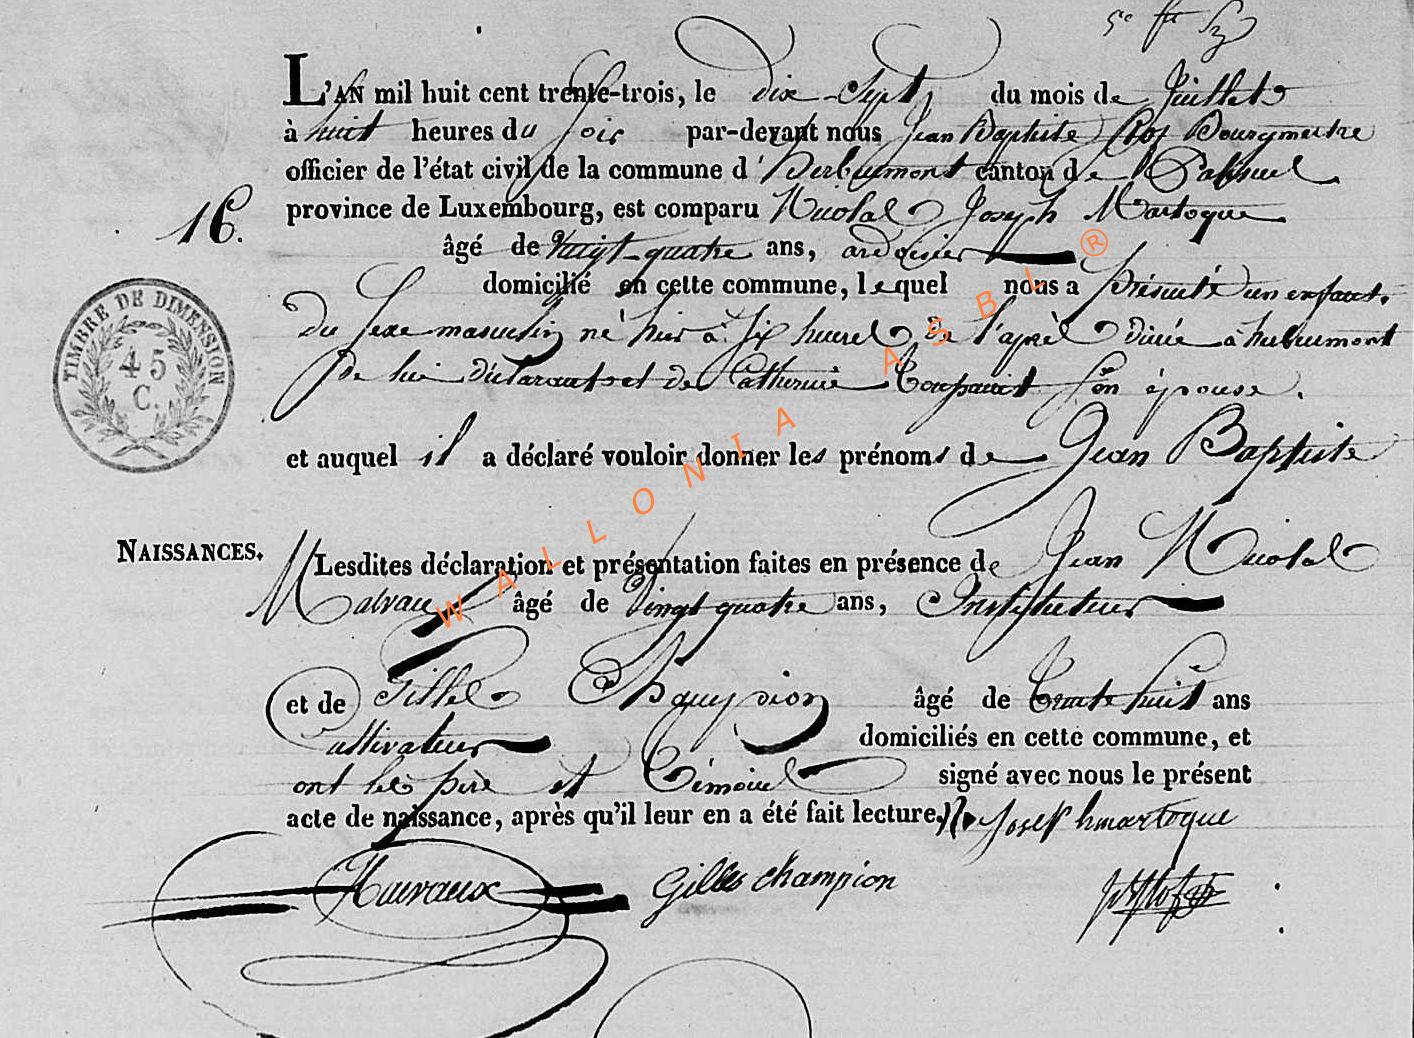 L'AN mil huit cent trente-trois, le dix-Sept du mois de Juillet
à huit heures du Soir par-devant nous Jean Baptiste Bourgmestre
officier de l'état civil de la commune d'herbeumont canton de Paliseul
16. province de Luxembourg, est comparu Nicolas Joseph Martoque
âgé de vingt-quatre ans, ardoisier
domicilié en cette commune, lequel nous a présenté un enfant
TIMBRE DE DIMENSION
45
C.
du Sexe masculin né hier à Six heures de l'après diné à herbeumont
de lui déclarant et de Catherine Son épouse.
et auquel il a déclaré vouloir donner les prénoms de Jean Baptiste
NAISSANCES. Lesdites déclaration et présentation faites en présence de Jean Nicolas
âgé de Vingt quatre ans, Instituteur
et de Gilles Champion âgé de Trente huit ans
Cultivateur domiciliés en cette commune, et
ont les père et Témoins signé avec nous le présent
acte de naissance, après qu'il leur en a été fait lecture. N. Joseph martoque
Gilles Champion
WALLONIA ASBL ®